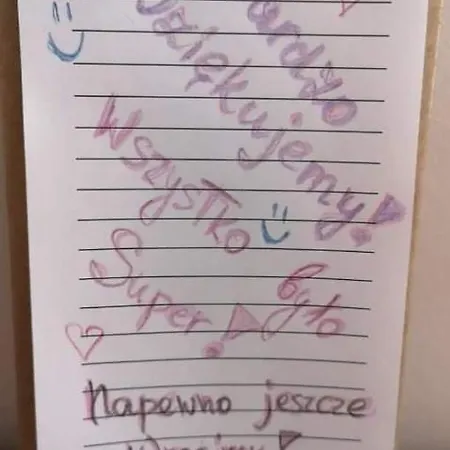 Bardzo
Dziękujemy!
Wszystko
było
Super!
Napewno jeszcze
wrócimy!